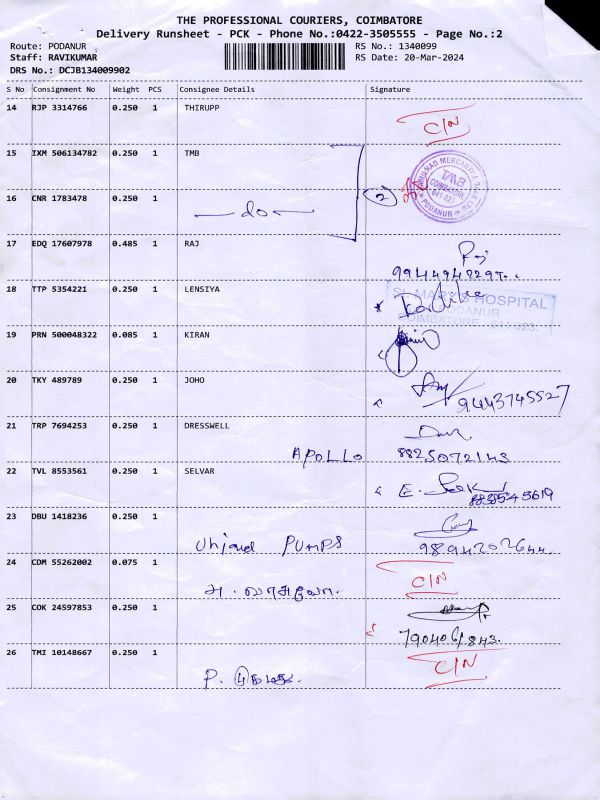 THE PROFESSIONAL COURIERS, COIMBATORE
Delivery Runsheet - PCK - Phone No.:0422-3505555 - Page No.:2
Route: PODANUR RS No.: 1340099
Staff: RAVIKUMAR RS Date: 20-Mar-2024
DRS No.: DCJB134009902
S No Consignment No Weight PCS Consignee Details Signature
14 RJP 3314766 0.250 1 THIRUPP
C/N
15 IXM 506134782 0.250 1 TMB
TMB
COIMBATORE
641 023
PODANUR
16 CNR 1783478 0.250 1
do 2
17 EDQ 17607978 0.485 1 RAJ
Raj
18 TTP 5354221 0.250 1 LENSIYA
ST. MARY'S HOSPITAL
PODANUR
COIMBATORE - 641 023.
19 PRN 500048322 0.085 1 KIRAN
20 TKY 489789 0.250 1 JOHO
9443745527
21 TRP 7694253 0.250 1 DRESSWELL
APOLLO 8825072143
22 TVL 8553561 0.250 1 SELVAR
23 DBU 1418236 0.250 1
PUMPS 9894202644
24 CDM 55262002 0.075 1
C/N
25 COK 24597853 0.250 1
26 TMI 10148667 0.250 1
C/N
P.